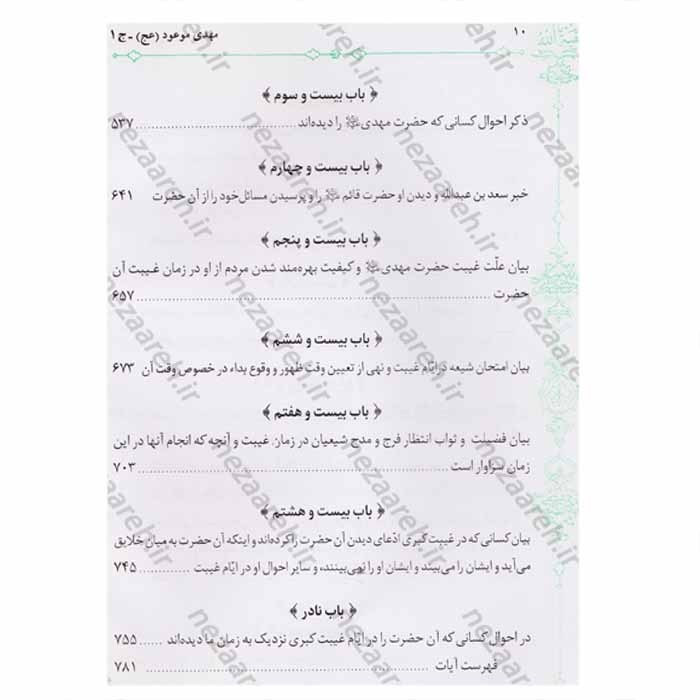 ۱۰ مهدی موعود (عج) - ج۱
﴿ باب بیست و سوم ﴾
ذکر احوال کسانی که حضرت مهدی ﷺ را دیده‌اند ........................ ۵۳۷
﴿ باب بیست و چهارم ﴾
خبر سعد بن عبدالله و دیدن او حضرت قائم را و پرسیدن مسائل خود را از آن حضرت ۶۴۱
﴿ باب بیست و پنجم ﴾
بیان علّت غیبت حضرت مهدی و کیفیت بهره‌مند شدن مردم از او در زمان غیبت آن
حضرت ........................ ۶۵۷
﴿ باب بیست و ششم ﴾
بیان امتحان شیعه در ایّام غیبت و نهی از تعیین وقت ظهور و وقوع بداء در خصوص وقت آن ۶۷۳
﴿ باب بیست و هفتم ﴾
بیان فضیلت و ثواب انتظار فرج و مدح شیعیان در زمان غیبت و آنچه که انجام آنها در این
زمان سزاوار است ........................ ۷۰۳
﴿ باب بیست و هشتم ﴾
بیان کسانی که در غیبت کبری ادّعای دیدن آن حضرت را کرده‌اند و اینکه آن حضرت به میان خلایق
می‌آید و ایشان را می‌بیند و ایشان او را نمی‌بینند، و سایر احوال او در ایّام غیبت ............ ۷۴۵
﴿ باب نادر ﴾
در احوال کسانی که آن حضرت را در ایّام غیبت کبری نزدیک به زمان ما دیده‌اند ...... ۷۵۵
فهرست آیات ........................ ۷۸۱
nezaareh.ir